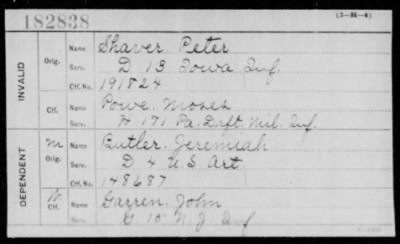 182838
(3-H-4)
INVALID
Orig.
Name Shaver, Peter
Serv. D 13 Iowa Inf.
Ctf. No. 191824
Ctf.
Name Powe, Moses
Serv. H 171 Pa. Drft. Mil. Inf.
DEPENDENT
M
Orig.
Name Butler, Jeremiah
Serv. D 4 U.S. Art.
Ctf. No. 148687
Ctf.
Name Garren, John
Serv. G 10 N.J. Inf